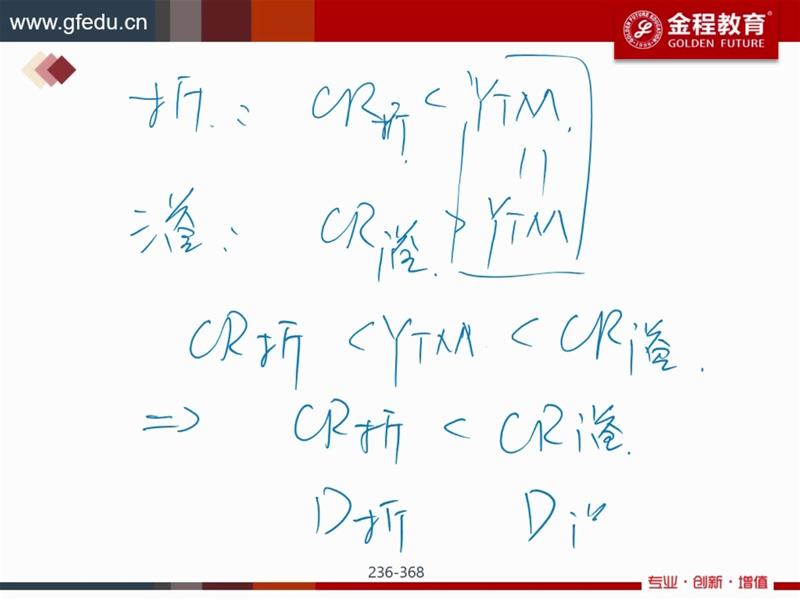 www.gfedu.cn
金程教育
GOLDEN FUTURE
折: CR折 < YTM.
=
溢: CR溢 > YTM
CR折 < YTM < CR溢.
=> CR折 < CR溢.
D折 D
236-368
专业·创新·增值